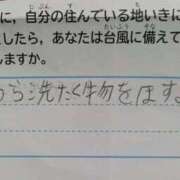 に、自分の住んでいる地いきに
としたら、あなたは台風に備えて
しますか。
から洗たく物をほすよ